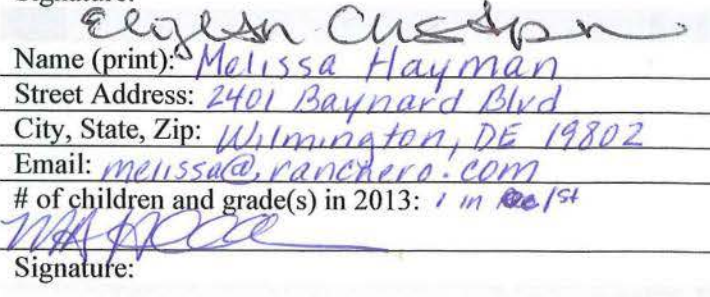 Signature:
Name (print): Melissa Hayman
Street Address: 2401 Baynard Blvd
City, State, Zip: Wilmington, DE 19802
Email: melissa@ranchero.com
# of children and grade(s) in 2013: 1 in 1st
Signature: